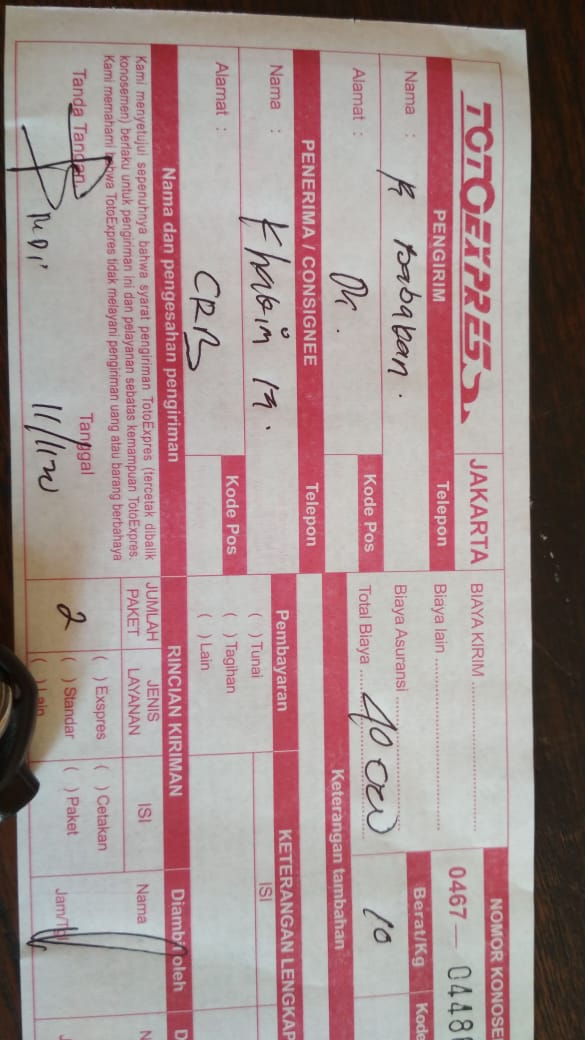 TOTOEXPRES
JAKARTA
PENGIRIM
Telepon
Nama :
Alamat :
Kode Pos
PENERIMA / CONSIGNEE
Telepon
Nama :
Alamat : CRB
Kode Pos
Nama dan pengesahan pengiriman
Kami menyetujui sepenuhnya bahwa syarat pengiriman TotoExpres (tercetak dibalik
konosemen) berlaku untuk pengiriman ini dan pelayanan sebatas kemampuan TotoExpres.
Kami memahami bahwa TotoExpres tidak melayani pengiriman uang atau barang berbahaya
Tanda Tangan
Tanggal
BIAYA KIRIM
Biaya lain
Biaya Asuransi
Total Biaya
Keterangan tambahan
NOMOR KONOSE
0467 — 0448
Berat/Kg
Kode
10
Pembayaran
( ) Tunai
( ) Tagihan
( ) Lain
KETERANGAN LENGKAP
ISI
RINCIAN KIRIMAN
JUMLAH PAKET
JENIS LAYANAN
ISI
2
( ) Exspres
( ) Standar
( ) Lain
( ) Cetakan
( ) Paket
Diambil oleh
Nama